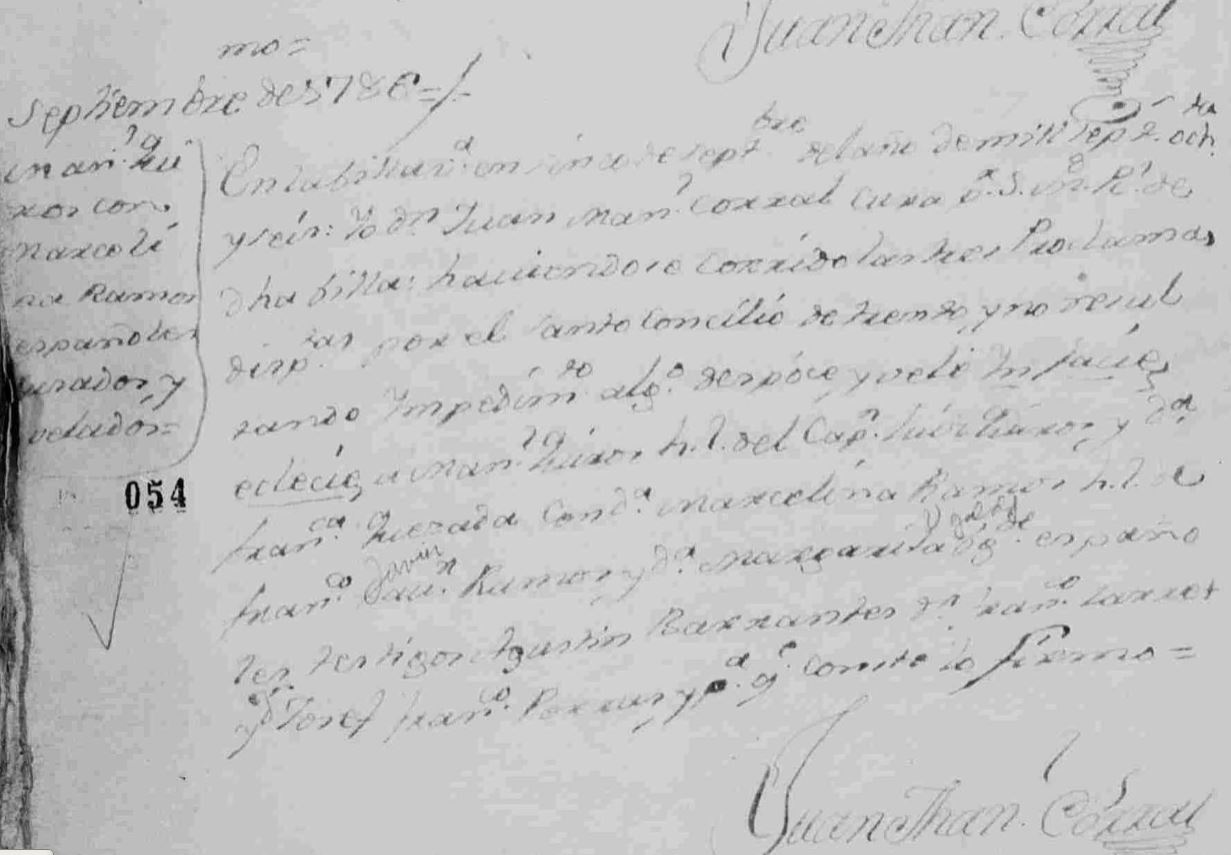 Juan Man. Corral
mo=
Septiembre de 1786=/-
Man.l Qui
ros con
Marceli
na Ramos
españoles
casados, y
velados=
054
En la billa en sinco de Sept.bre del año de mill sept.s och.ta
y seis: Yo D.n Juan Man.l Corral Cura p.r S. M. R.l de
dha billa: haviendose corrido las tres Proclamas
disp.tas por el santo Concilio de trento, y no resul
tando Impedim.to alg.o despóse, y velé In facie
eclecie, a Man.l Quiros h. l. del Cap.n Quiros, y D.a
fran.ca Quesada con D.a Marcelina Ramos h. l. de
fran.co Javi.r Ramos, y D.a Margarita españo
les testigos Agustin Barrantes D.n fran.co
y Josef fran.co Porras, y p.a q.e conste lo firmo=
Juan Man. Corral